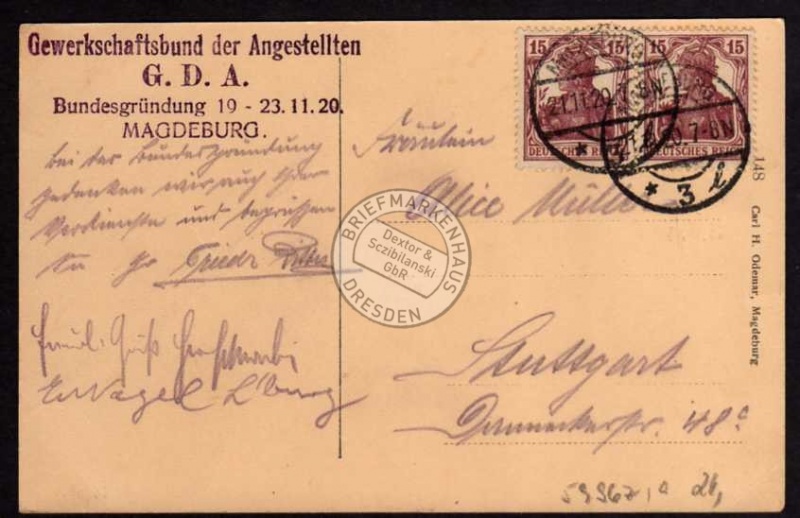 Gewerkschaftsbund der Angestellten
G. D. A.
Bundesgründung 19 - 23.11.20.
MAGDEBURG.
bei der Bundesgründung
gedenken wir auch Ihrer
Verdienste und begrüssen
Sie
E. Nagel L'burg
15 15 15 15
DEUTSCHES REICH DEUTSCHES REICH
21.11.20.7-8N
* 3 l
Fräulein
Alice Müller
Stuttgart
Danneckerstr. 48c
148 Carl H. Odemar, Magdeburg
BRIEFMARKENHAUS
Dextor &
Sczibilanski
GbR
DRESDEN